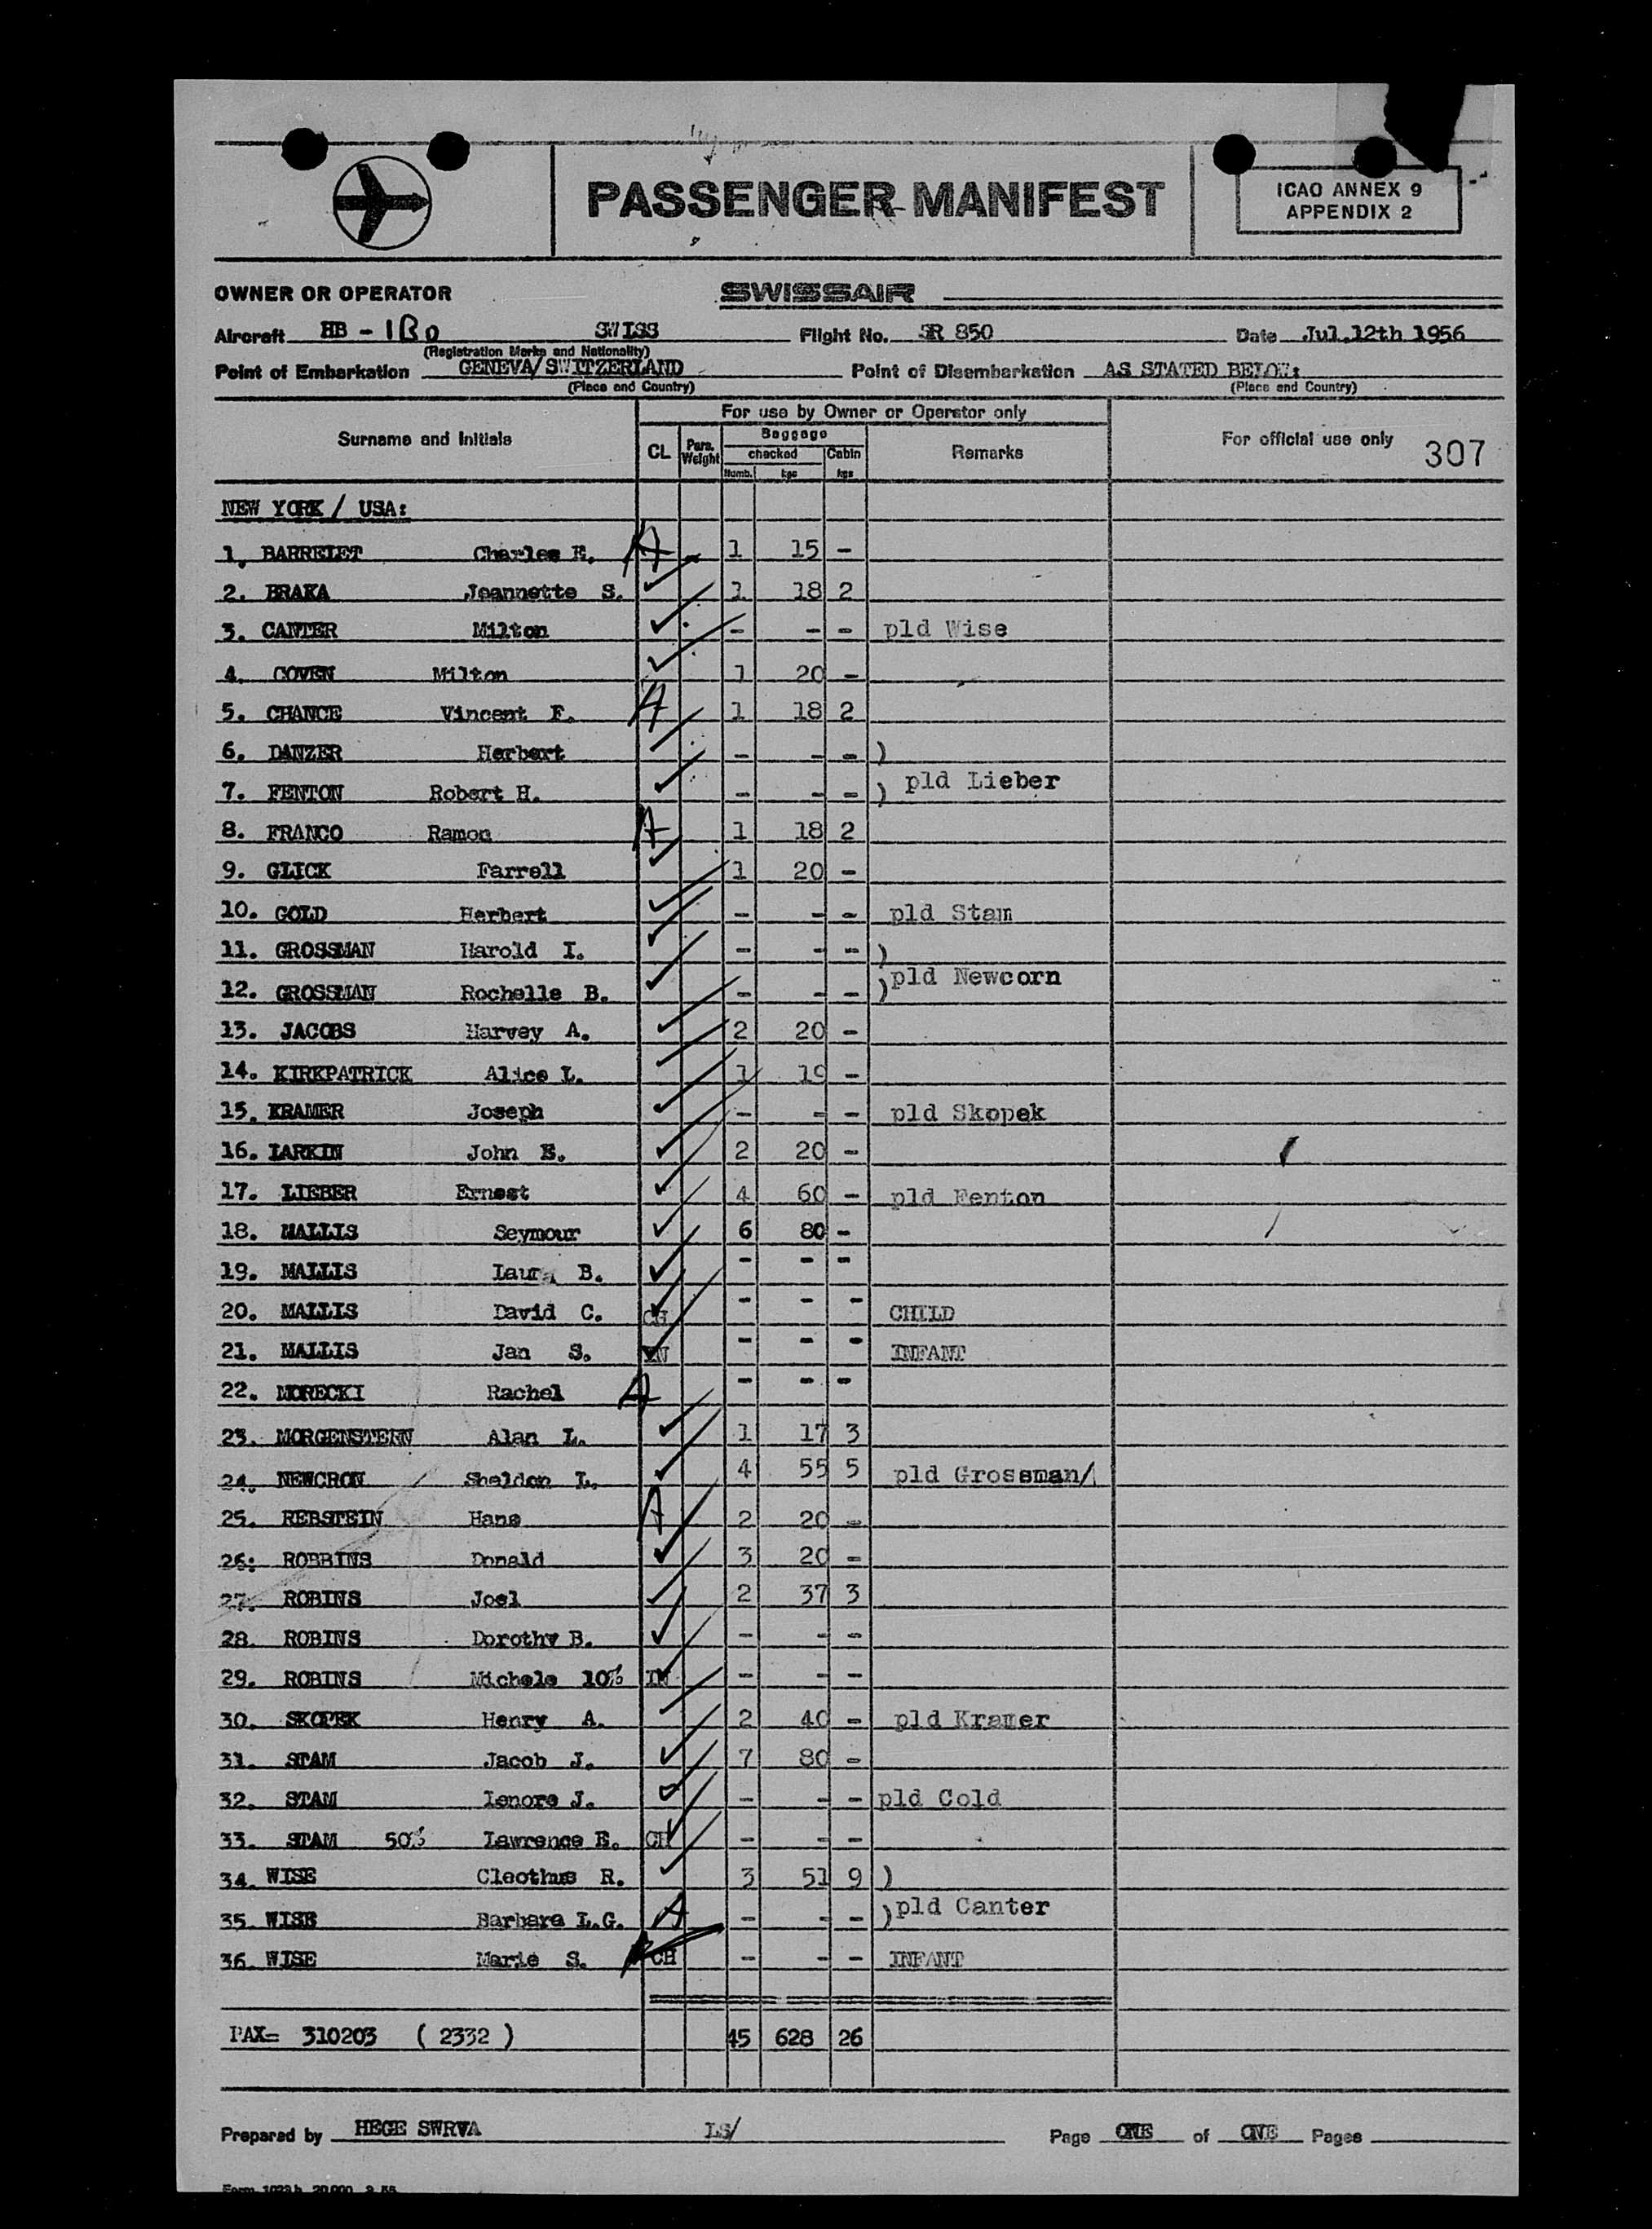 PASSENGER MANIFEST
ICAO ANNEX 9
APPENDIX 2
OWNER OR OPERATOR SWISSAIR
Aircraft HB - IBO SWISS Flight No. SR 850 Date Jul.12th 1956
(Registration Marks and Nationality)
Point of Embarkation GENEVA/SWITZERLAND Point of Disembarkation AS STATED BELOW:
(Place and Country) (Place and Country)
For use by Owner or Operator only
Surname and Initials CL Pers. Weight Baggage checked Numb. kgs Cabin kgs Remarks For official use only 307
NEW YORK / USA:
1. BARRELET Charles E. A 1 15 -
2. BRAKA Jeannette S. ✓ 1 18 2
3. CANTER Milton ✓ - - - pld Wise
4. COVEN Milton ✓ 1 20 -
5. CHANCE Vincent F. A 1 18 2
6. DANZER Herbert ✓ - - - )
7. FENTON Robert H. ✓ - - - ) pld Lieber
8. FRANCO Ramon A 1 18 2
9. GLICK Farrell ✓ 1 20 -
10. GOLD Herbert ✓ - - - pld Stam
11. GROSSMAN Harold I. ✓ - - - )
12. GROSSMAN Rochelle B. ✓ - - - ) pld Newcorn
13. JACOBS Harvey A. ✓ 2 20 -
14. KIRKPATRICK Alice L. ✓ 1 19 -
15. KRAMER Joseph ✓ - - - pld Skopek
16. LARKIN John E. ✓ 2 20 -
17. LIEBER Ernest ✓ 4 60 - pld Fenton
18. MALLIS Seymour ✓ 6 80 -
19. MALLIS Laura B. ✓ - - -
20. MALLIS David C. CH ✓ - - - CHILD
21. MALLIS Jan S. IN ✓ - - - INFANT
22. MORECKI Rachel A - - -
23. MORGENSTERN Alan L. ✓ 1 17 3
24. NEWCRON Sheldon L. ✓ 4 55 5 pld Grossman/
25. REBSTEIN Hans A 2 20 -
26. ROBBINS Donald ✓ 3 20 -
27. ROBINS Joel ✓ 2 37 3
28. ROBINS Dorothy B. ✓ - - -
29. ROBINS Michele 10% IN ✓ - - -
30. SKOPEK Henry A. ✓ 2 40 - pld Kramer
31. STAM Jacob J. ✓ 7 80 -
32. STAM Lenore J. ✓ - - - pld Cold
33. STAM 50% Lawrence E. CH ✓ - - -
34. WISE Cleothus R. ✓ 3 51 9 )
35. WISE Barbara L.G. A - - - ) pld Canter
36. WISE Marie S. CH - - - INFANT
PAX= 310203 ( 2332 ) 45 628 26
Prepared by HEGE SWRVA LS/ Page ONE of ONE Pages